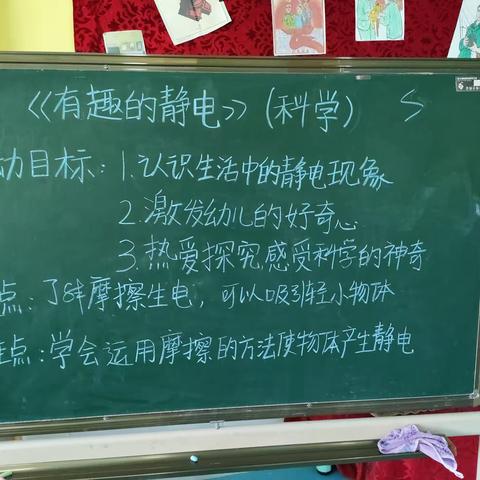 《有趣的静电》(科学)
动目标：1.认识生活中的静电现象
2.激发幼儿的好奇心
3.热爱探究,感受科学的神奇
点：了解摩擦生电，可以吸引轻小物体
难点：学会运用摩擦的方法使物体产生静电